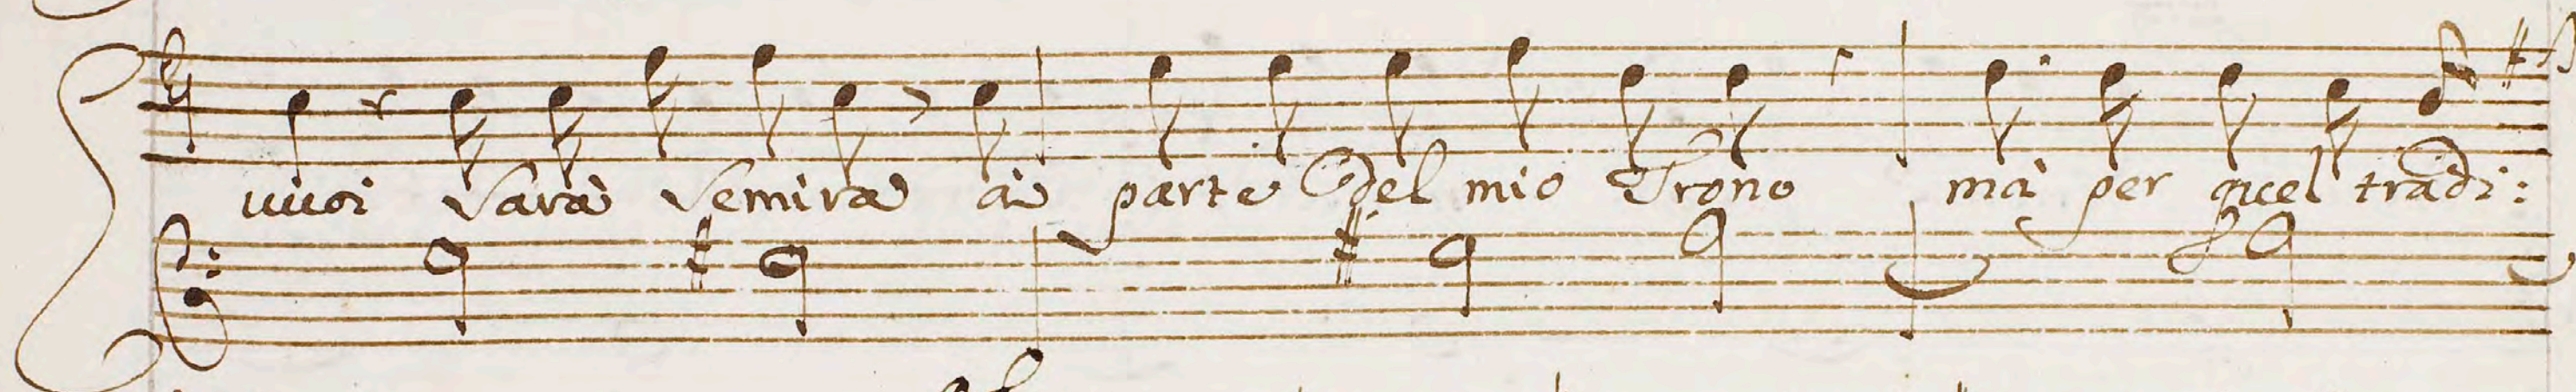 uuoi sarà Semira à parte del mio Trono mà per quel tradi: